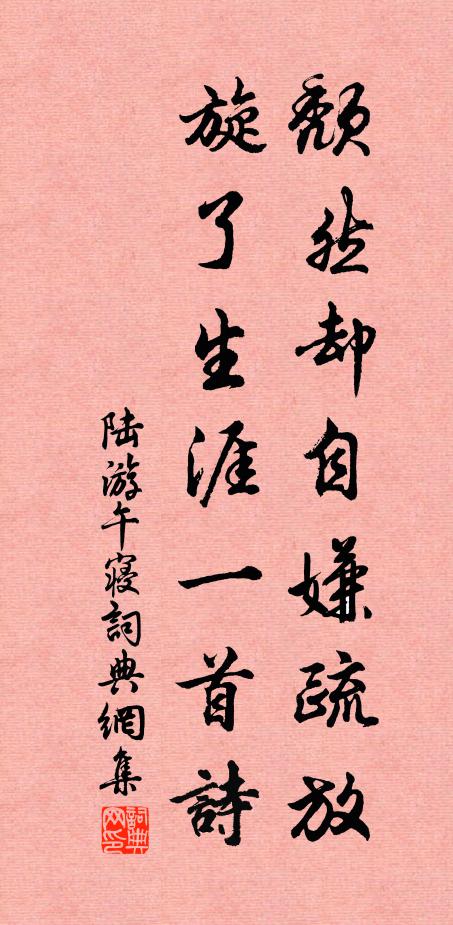 頹然却自嫌疏放
旋了生涯一首詩
陆游午寢詞典網集
詞典网印